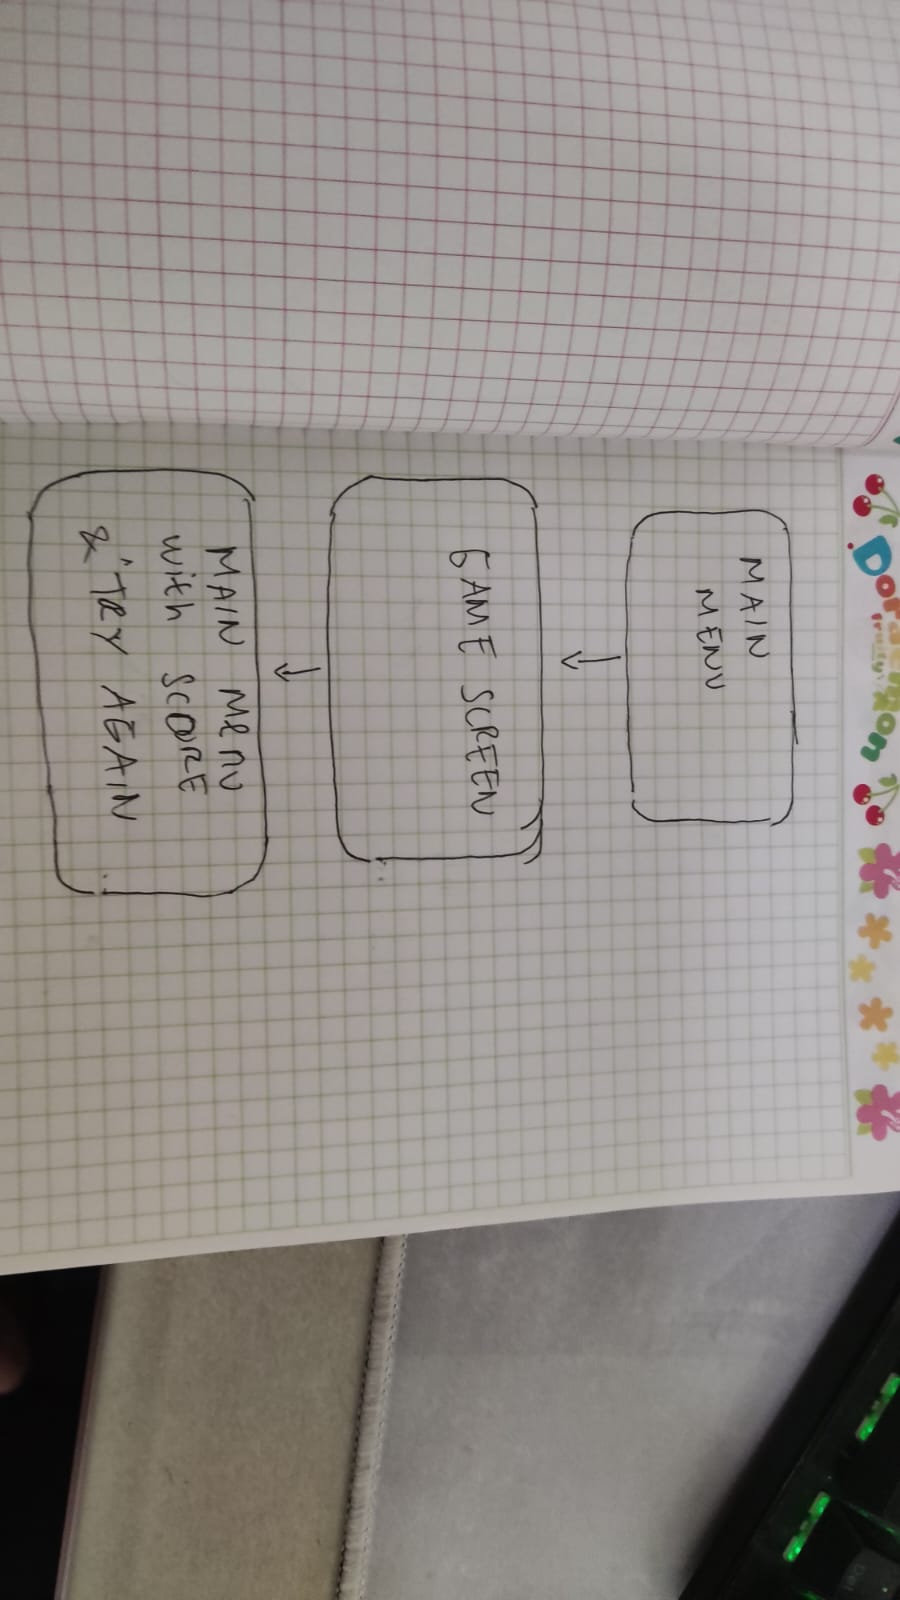 Doraemon
MAIN
MENU
GAME SCREEN
MAIN MENU
with SCORE
& "TRY AGAIN